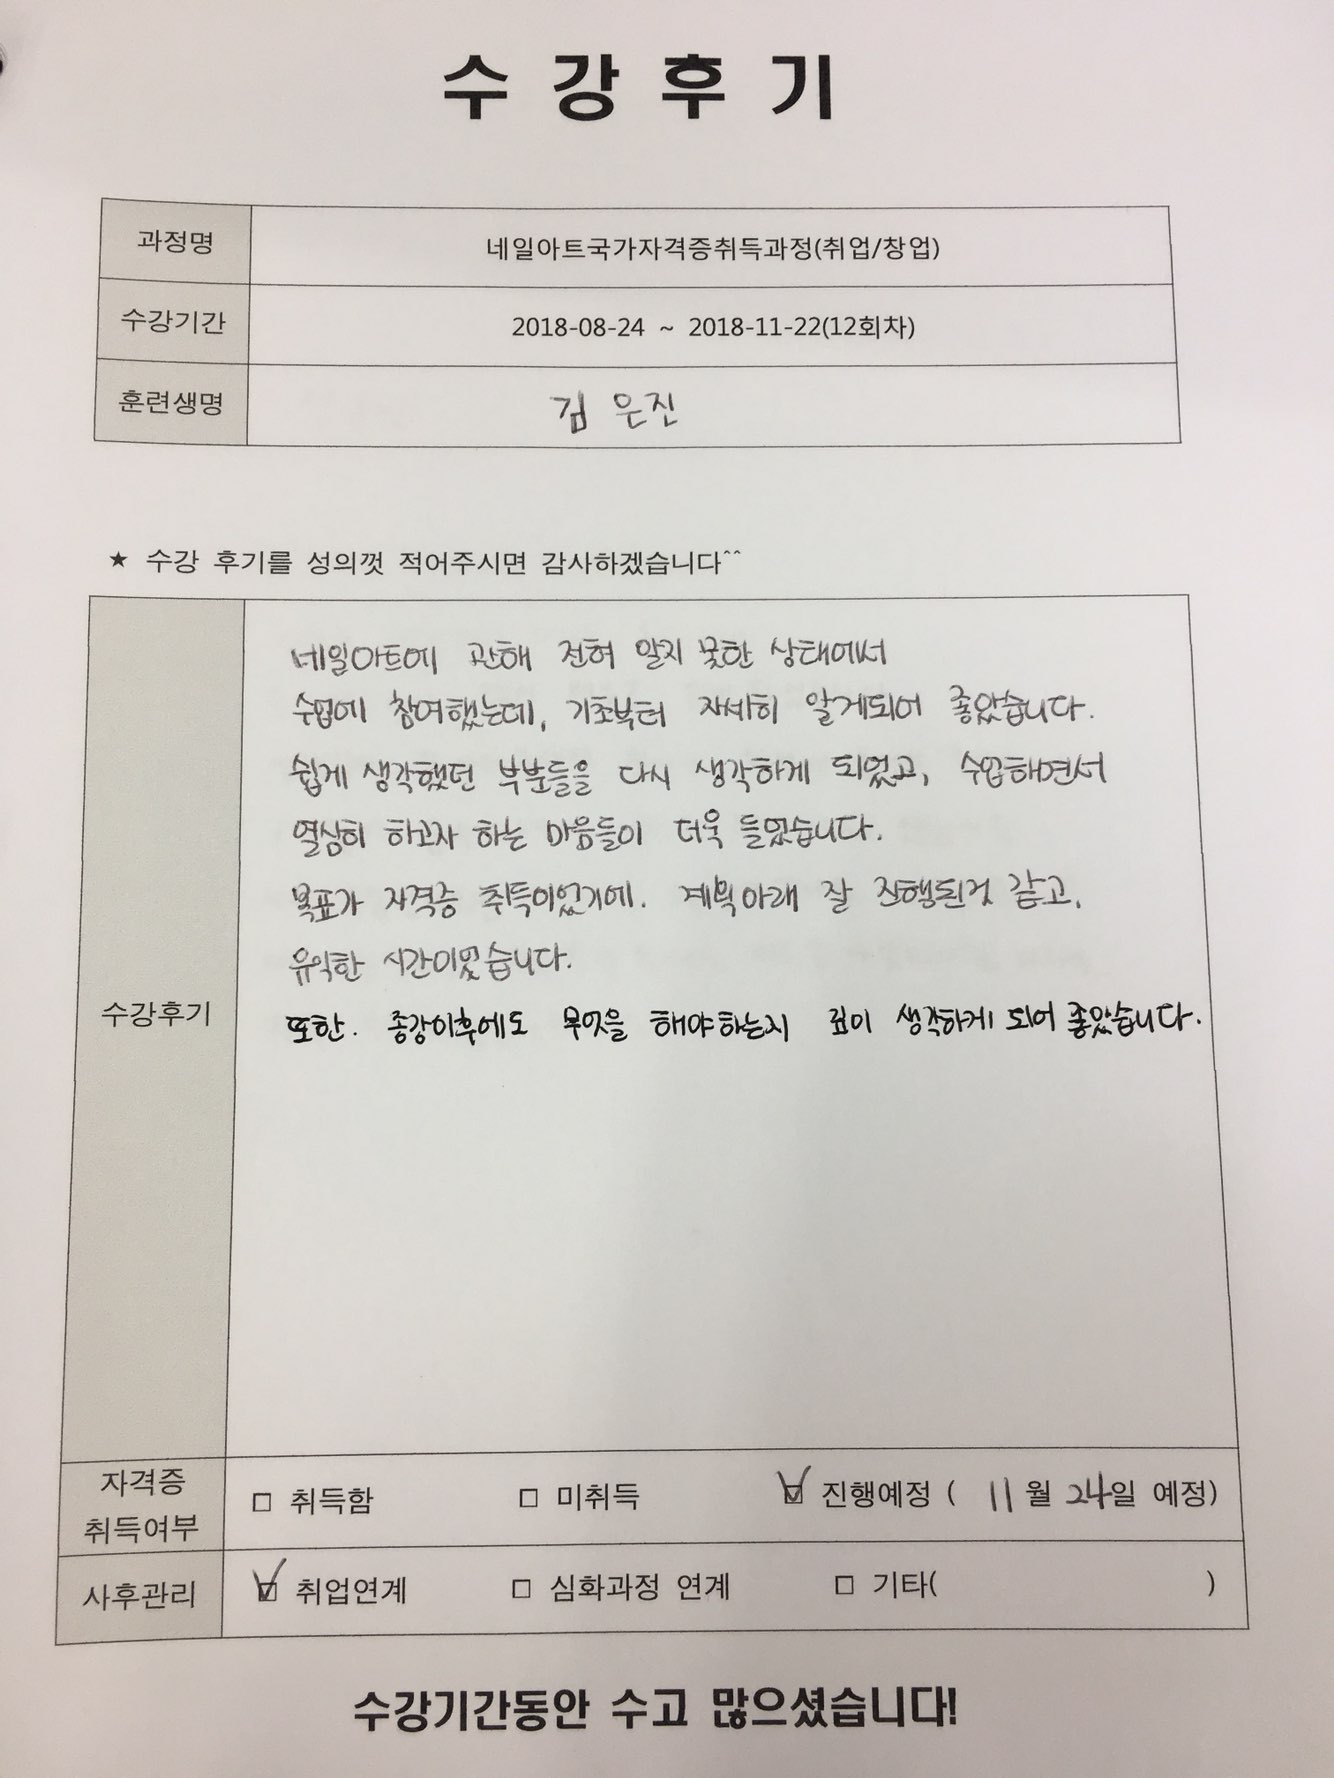 수강후기
과정명 네일아트국가자격증취득과정(취업/창업)
수강기간 2018-08-24 ~ 2018-11-22(12회차)
훈련생명 김은진
★ 수강 후기를 성의껏 적어주시면 감사하겠습니다^^
네일아트에 관해 전혀 알지 못한 상태에서
수업에 참여했는데, 기초부터 자세히 알게되어 좋았습니다.
쉽게 생각했던 부분들을 다시 생각하게 되었고, 수업하면서
열심히 하고자 하는 마음들이 더욱 들었습니다.
목표가 자격증 취득이었기에. 계획아래 잘 진행된것 같고,
유익한 시간이었습니다.
수강후기
또한. 종강이후에도 무엇을 해야하는지 깊이 생각하게 되어 좋았습니다.
자격증 취득여부 □ 취득함 □ 미취득 ☑ 진행예정 ( 11월 24일 예정)
사후관리 ☑ 취업연계 □ 심화과정 연계 □ 기타( )
수강기간동안 수고 많으셨습니다!